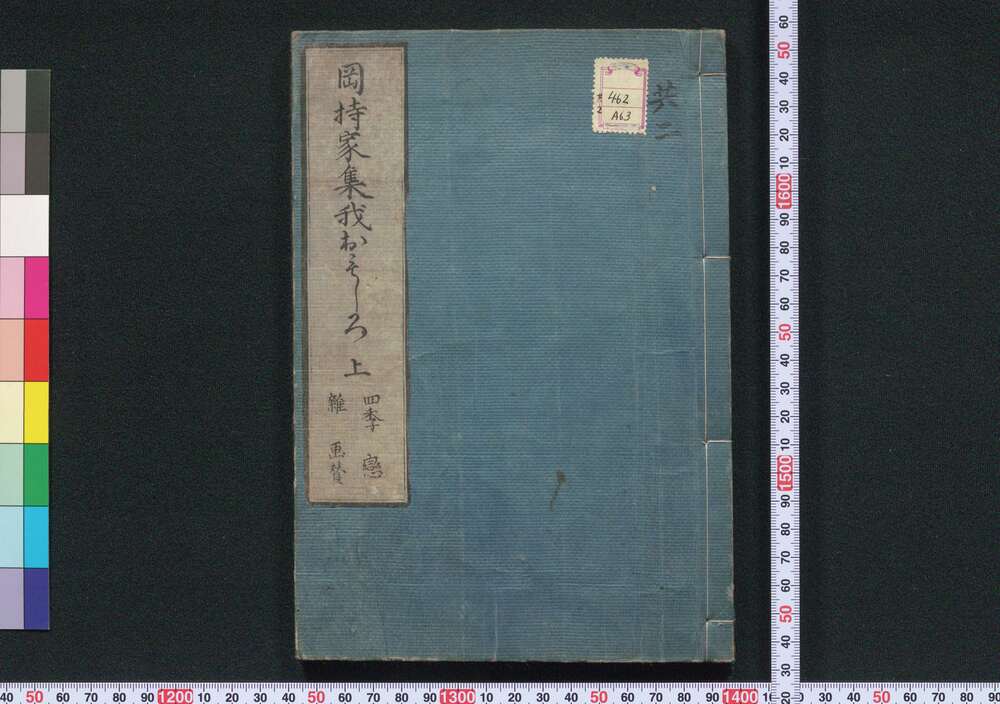 岡持家集我おもしろ 上
四季 戀
雜 画賛
共二
462
A63
40 50 60 70 80 90 1200 10 20 30 40 50 60 70 80 90 1300 10 20 30 40 50 60 70 80 90 1400 20 30 40 50 60 70 80 90
60 50 40 30 20 10 1600 90 80 70 60 50 40 30 20 10 1500 90 80 70 60 50 40 30 20